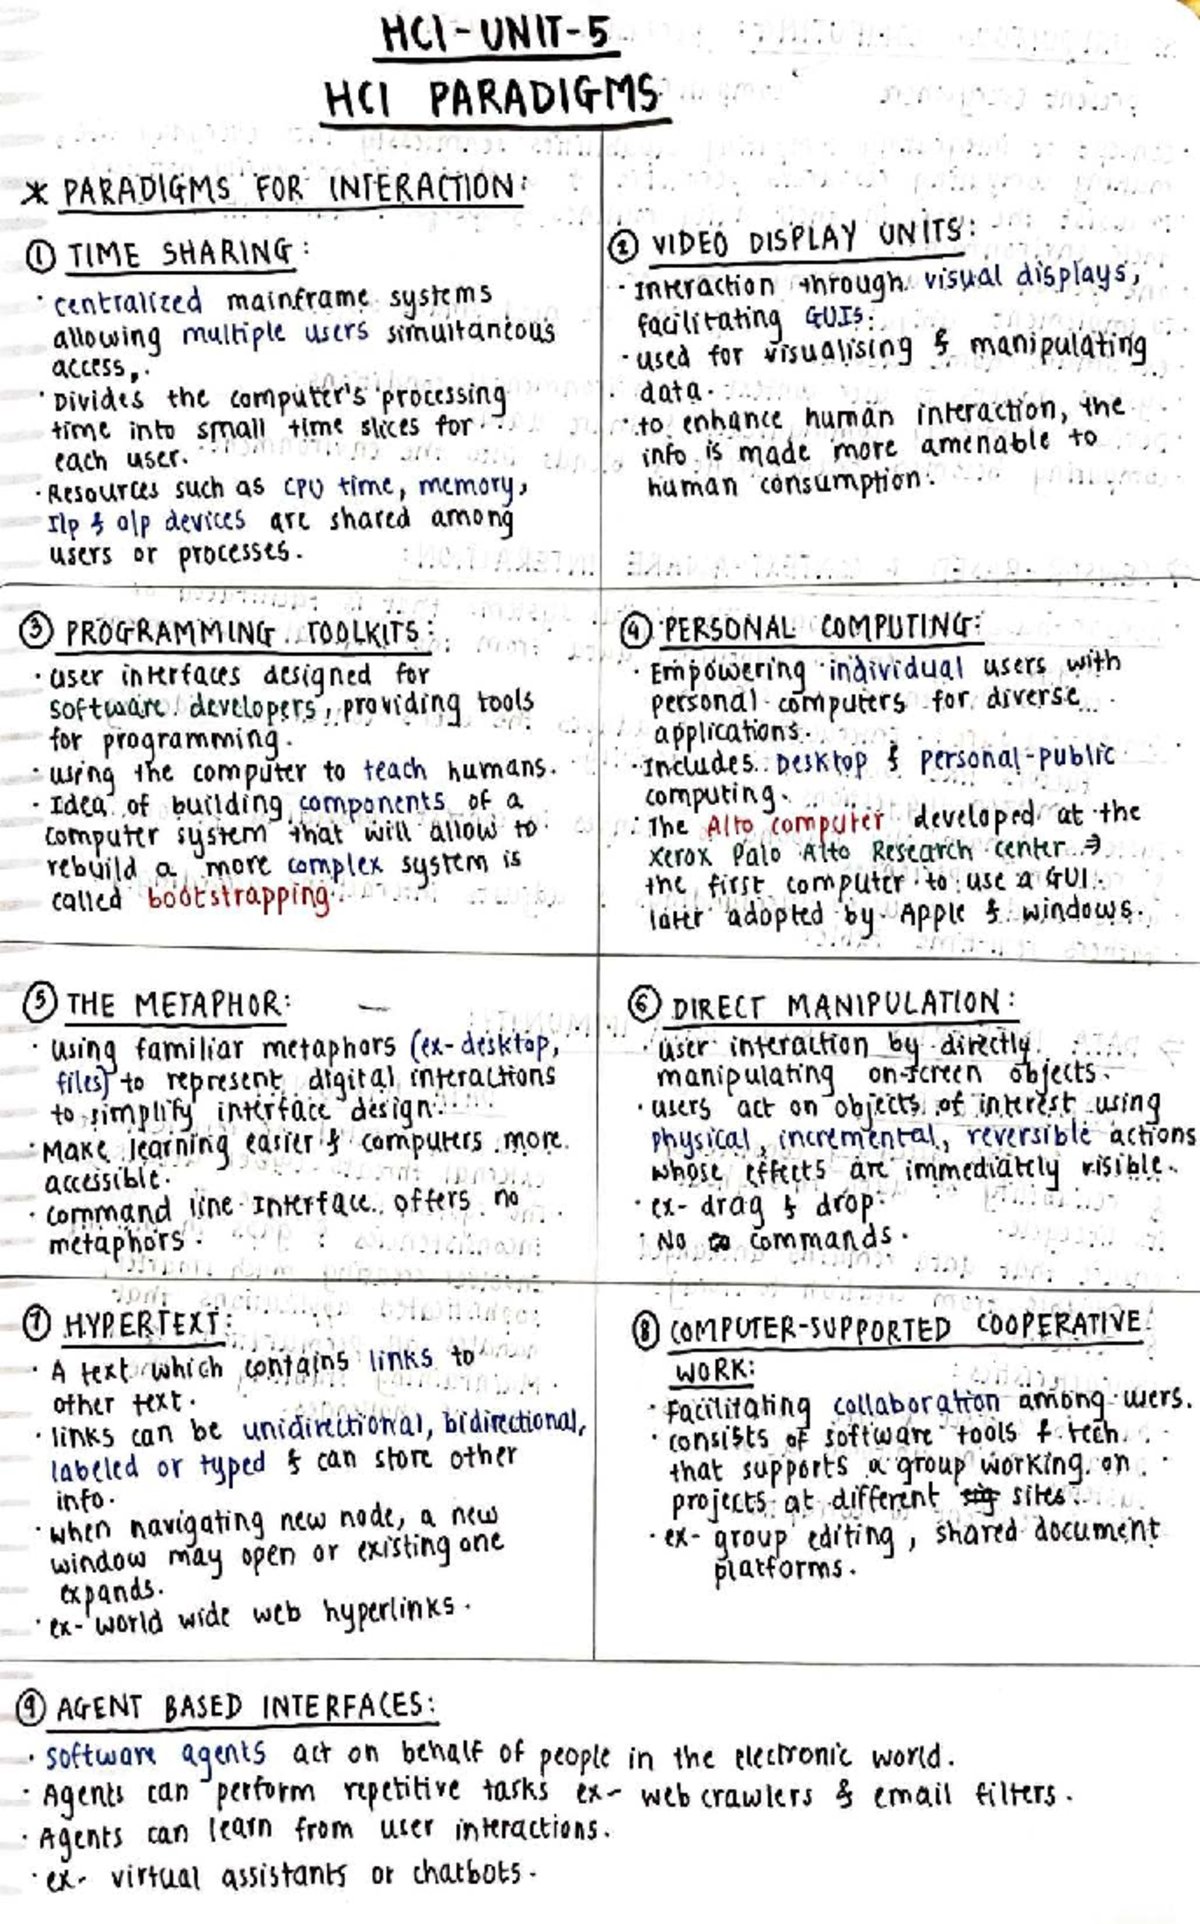 HCI-UNIT-5
HCI PARADIGMS
* PARADIGMS FOR INTERACTION:
① TIME SHARING:
· centralized mainframe systems
allowing multiple users simultaneous
access,.
· Divides the computer's processing
time into small time slices for
each user.
· Resources such as CPU time, memory,
I/p & o/p devices are shared among
users or processes.
② VIDEO DISPLAY UNITS:
· Interaction through visual displays,
facilitating GUIs.
· used for visualising & manipulating
data.
· to enhance human interaction, the
info is made more amenable to
human consumption.
③ PROGRAMMING TOOLKITS:
· user interfaces designed for
software developers, providing tools
for programming.
· using the computer to teach humans.
· Idea of building components of a
computer system that will allow to
rebuild a more complex system is
called bootstrapping.
④ PERSONAL COMPUTING:
· Empowering individual users with
personal computers for diverse
applications.
· Includes Desktop & personal-public
computing.
· The Alto computer developed at the
Xerox Palo Alto Research center →
the first computer to use a GUI.
later adopted by Apple & windows.
⑤ THE METAPHOR:
· using familiar metaphors (ex-desktop,
files) to represent digital interactions
to simplify interface design.
· Make learning easier & computers more
accessible.
· command line Interface offers no
metaphors.
⑥ DIRECT MANIPULATION:
· user interaction by directly
manipulating on-screen objects.
· users act on objects of interest using
physical, incremental, reversible actions
whose effects are immediately visible.
· ex- drag & drop.
· No commands.
⑦ HYPERTEXT:
· A text which contains links to
other text.
· links can be unidirectional, bidirectional,
labeled or typed & can store other
info.
· when navigating new node, a new
window may open or existing one
expands.
· ex- world wide web hyperlinks.
⑧ COMPUTER-SUPPORTED COOPERATIVE
WORK:
· Facilitating collaboration among users.
· consists of software tools & tech.
that supports a group working on
projects at different sites.
· ex- group editing, shared document
platforms.
⑨ AGENT BASED INTERFACES:
· software agents act on behalf of people in the electronic world.
· Agents can perform repetitive tasks ex- web crawlers & email filters.
· Agents can learn from user interactions.
· ex- virtual assistants or chatbots.